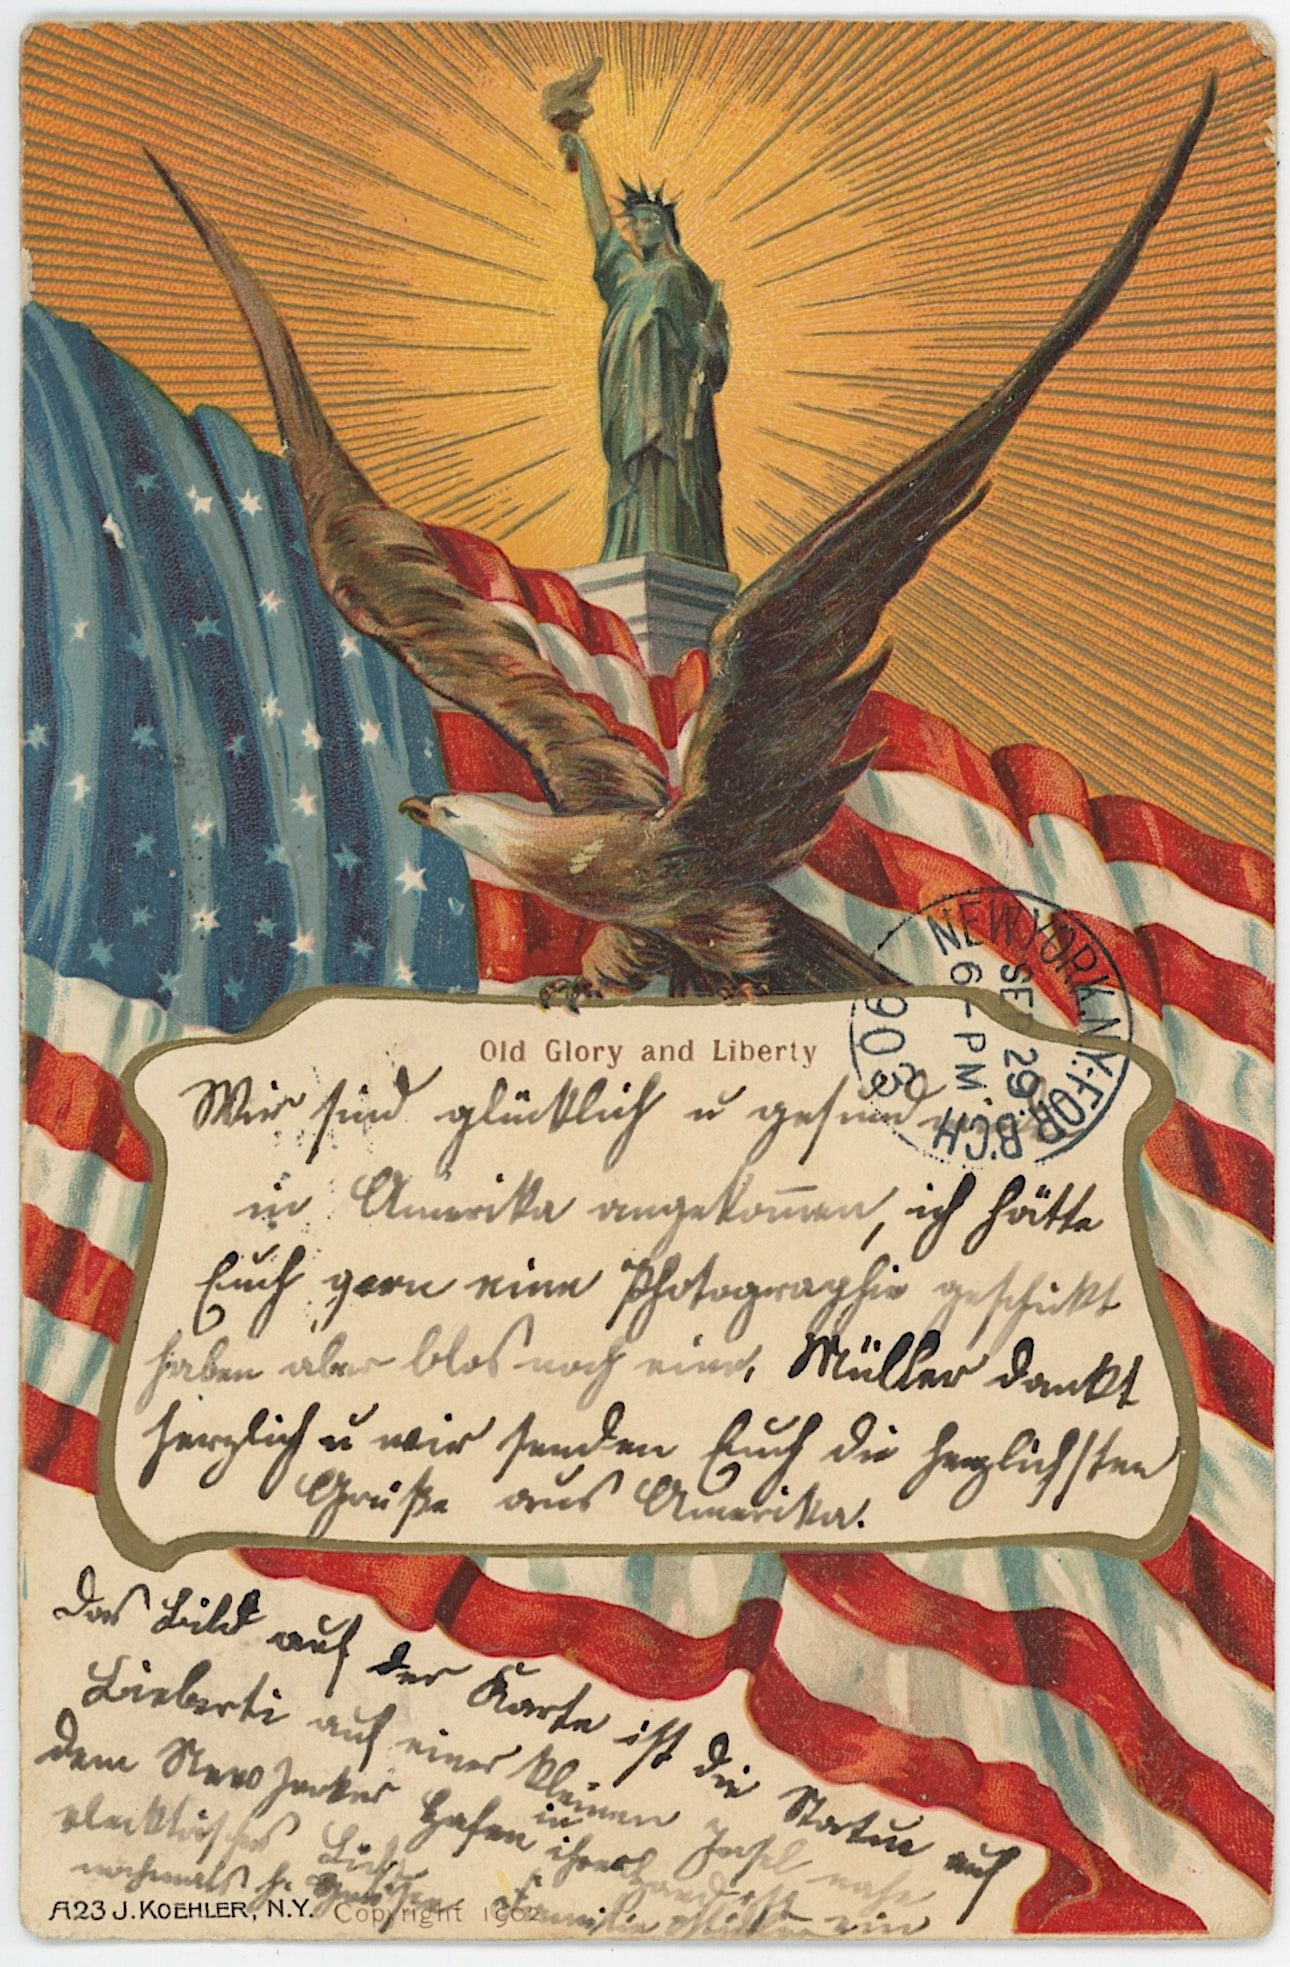 Old Glory and Liberty
NEW YORK, N.Y. FOR. B'CH
SEP 29
6-PM
1903
Wir sind glücklich u gesund
in Amerika angekom̅en, ich hätte
Euch gern eine Photographie geschickt
haben aber blos noch eine, Müller dankt
herzlich u wir senden Euch die herzlichsten
Grüße aus Amerika.
Das Bild auf der Karte ist die Statue auf
Lieberti auf einer kleinen Insel nahe
dem New Jorker Hafen in ihrer Hand ist ein
elecktrisches Licht
nochmals h. Grüße Familie Müller
A23 J. KOEHLER, N.Y. Copyright 1902